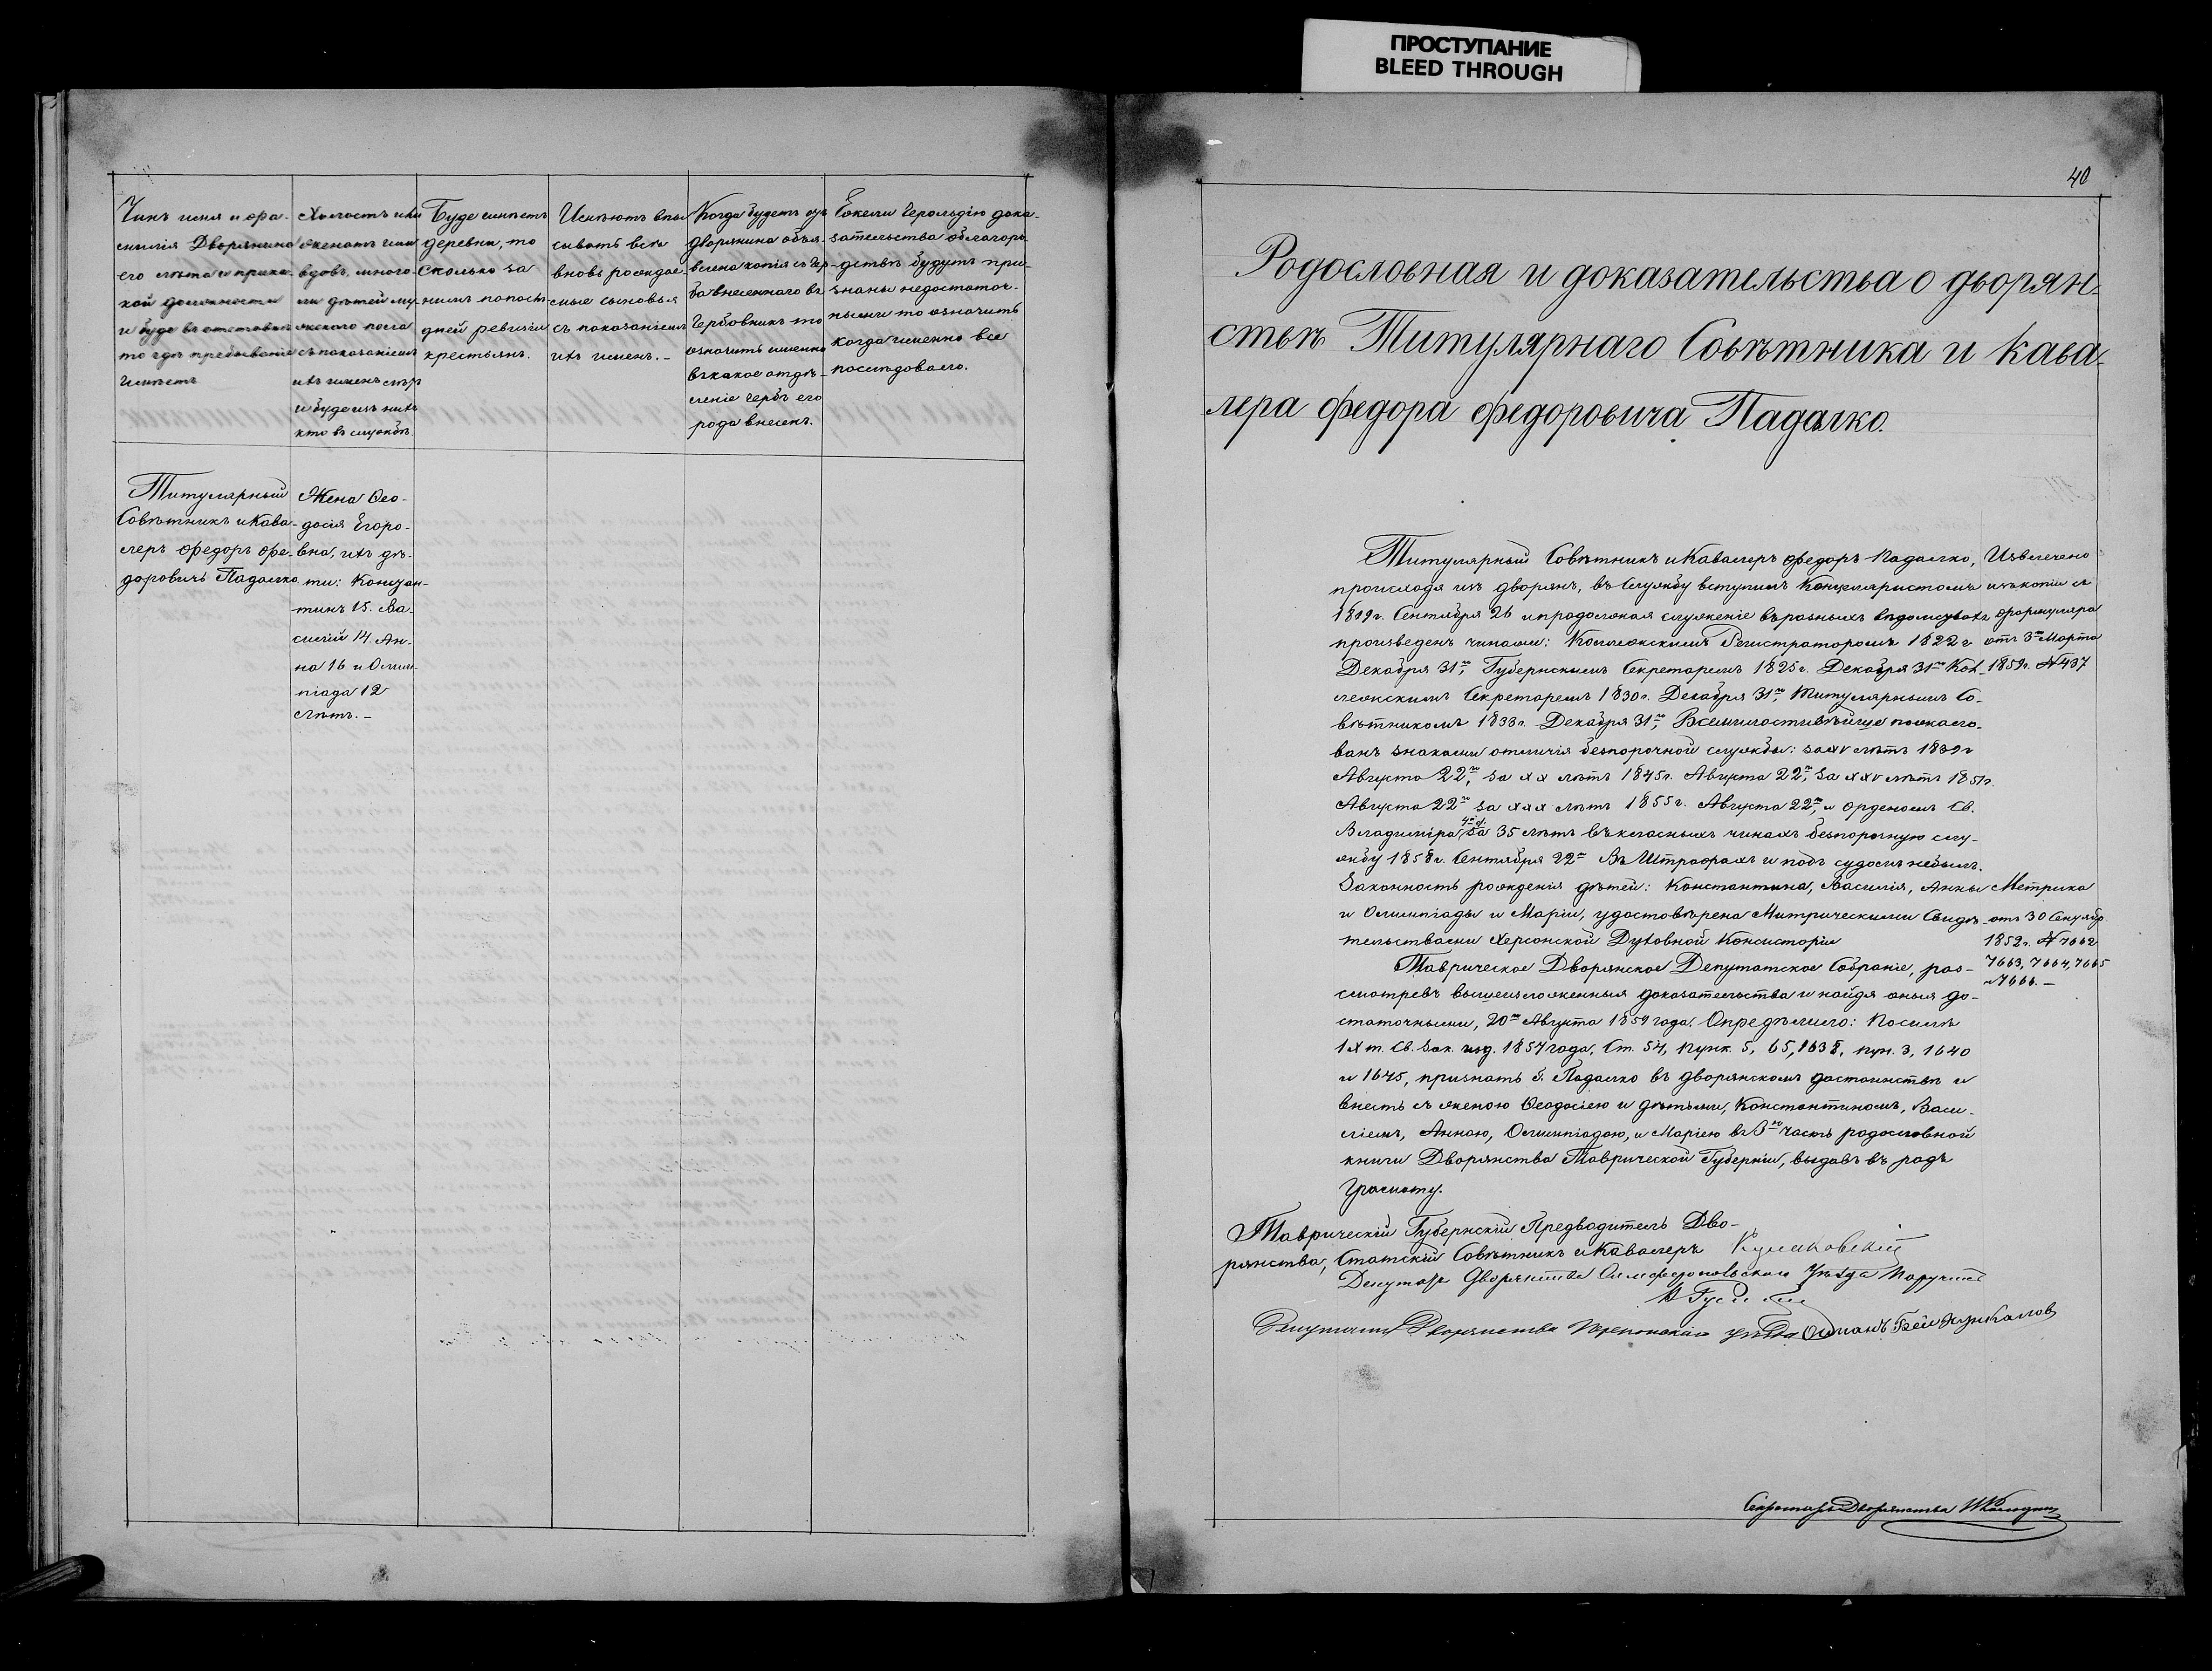 ПРОСТУПАНИЕ
BLEED THROUGH
Чинъ имя и фа-
милія Дворянина
его лѣта и при ка-
кой должности
и буде въ отставкѣ
то гдѣ пребываніе
имѣетъ
Холостъ или
женатъ или
вдовъ, много
ли дѣтей му-
жеского пола
съ показаніемъ
ихъ именъ лѣтъ
и буде изъ нихъ
кто въ службѣ.
Буде имѣетъ
деревни, то
сколько за
нимъ по послѣ
дней ревизіи
крестьянъ.
Имѣютъ впи
сывать всѣ
вновь рождае-
мые сыновья
съ показаніемъ
ихъ именъ.-
Когда будетъ
дворянина объя-
влена копія съ гер-
ба внесеннаго въ
Гербовникъ то
означить именно
въ какое отдѣ-
леніе гербъ его
рода внесенъ.
Ежели Герольдію дока-
зательства о благоро-
дствѣ будутъ при-
знаны недостаточ-
ными то означить
когда именно все
послѣдовало.
Титулярный
Совѣтникъ и Кава-
леръ Федоръ Фе-
доровичъ Падалко
Жена Ѳео-
досія Егоро-
вна, ихъ дѣ-
ти: Констан-
тинъ 15. Ва-
силій 14. Ан-
на 16 и Олим-
піада 12
лѣтъ.-
40
Родословная и доказательства о дворян-
ствѣ Титулярнаго Совѣтника и Кава-
лера Федора Федоровича Падалко.
Титулярный Совѣтникъ и Кавалеръ Федоръ Падалко,
происходя изъ дворянъ, въ службу вступилъ Канцеляристомъ
1819 г. Сентября 26 и продолжая служеніе въ разныхъ вѣдомствахъ
произведенъ чинами: Коллежскимъ Регистраторомъ 1822 г
Декабря 31го, Губернскимъ Секретаремъ 1825 г. Декабря 31го Кол-
лежскимъ Секретаремъ 1830 г. Декабря 31го, Титулярнымъ Со-
вѣтникомъ 1833 г. Декабря 31го, Всемилостивѣйше пожало-
ванъ знаками отличія безпорочной службы: за XV лѣтъ 1839 г
Августа 22го, за XX лѣтъ 1845 г. Августа 22го, за XXV лѣтъ 1851 г.
Августа 22го за XXX лѣтъ 1855 г. Августа 22го, и орденомъ Св.
Владиміра 4й ст. за 35 лѣтъ въ класныхъ чинахъ безпорочную слу-
жбу 1858 г. Сентября 22го Въ Штрафахъ и подъ судомъ небылъ.
Законность рожденія дѣтей: Константина, Василія, Анны
и Олимпіады и Маріи, удостовѣрена Митрическими Свидѣ-
тельствами Херсонской Духовной Консисторіи
Таврическое Дворянское Депутатское Собраніе, раз-
смотревъ вышеизложенныя доказательства и найдя оныя до-
статочными, 20го Августа 1859 года, Опредѣлило: По силѣ
IX т. Св. Зак. изд. 1857 года, Ст. 54, пунк. 5, 65, 1638, пун. 3, 1640
и 1645, признать г. Падалко въ дворянскомъ достоинствѣ и
внесть съ женою Ѳеодосіею и дѣтьми, Константиномъ, Васи-
ліемъ, Анною, Олимпіадою, и Маріею въ 3ю часть родословной
книги Дворянства Таврической Губерніи, выдавъ въ родъ
грамоту.
Извлечено
изъ копіи съ
формуляра
отъ 3го Марта
1859 г. № 437
Метрика
отъ 30 Сентябр.
1852 г. № 7662
7663, 7664, 7665
и 7666.-
Таврическій Губернскій Предводитель Дво-
рянства, Статскій Совѣтникъ и Кавалеръ
Депутатъ Дворянства Симферопольскаго Уѣзда Поручикъ
Депутатъ Дворянства Перекопскаго уѣзда Османъ Бей
Секретарь Дворянства